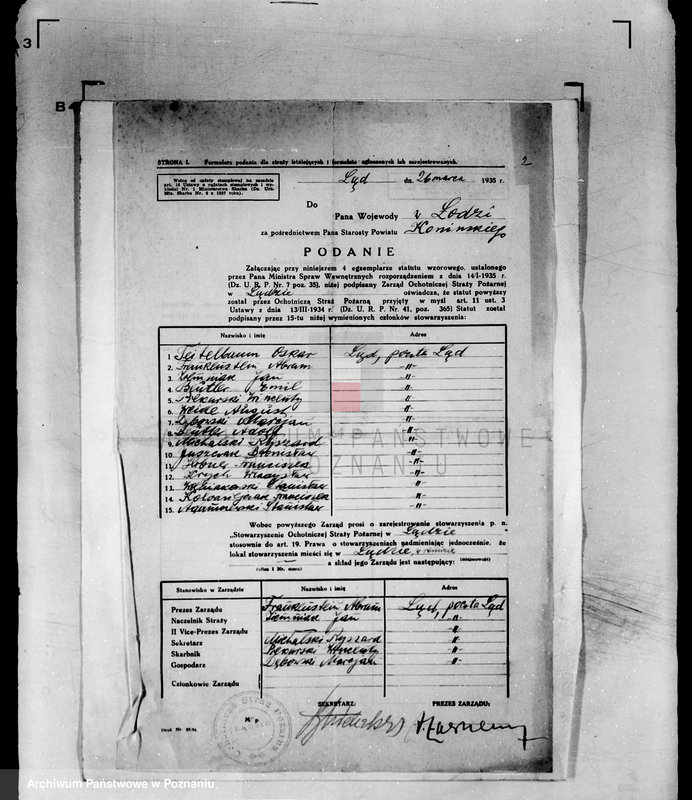 3
B
STRONA I. Formularz podania dla straży istniejących i formalnie zgłoszonych lub zarejestrowanych.
2
Wolne od opłaty stemplowej na zasadzie
art. 16 Ustawy o opłatach stemplowych i wy-
Min. Skarbu Nr. 4 z 1927 roku).
Ląd dn. 26 marca 1935 r.
Do
Pana Wojewody w Łodzi
za pośrednictwem Pana Starosty Powiatu Konińskiego
PODANIE
Załączając przy niniejszem 4 egzemplarze statutu wzorowego, ustalonego
przez Pana Ministra Spraw Wewnętrznych rozporządzeniem z dnia 14/I-1935 r.
(Dz. U. R. P. Nr. 7 poz. 35), niżej podpisany Zarząd Ochotniczej Straży Pożarnej
w Lądzie oświadcza, że statut powyższy
został przez Ochotniczą Straż Pożarną przyjęty w myśl art. 11 ust. 3
Ustawy z dnia 13/III-1934 r. (Dz. U. R. P. Nr. 41, poz. 365) Statut został
podpisany przez 15-tu niżej wymienionych członków stowarzyszenia:
Nazwisko i imię Adres
1 Teitelbaum Oskar Ląd, poczta Ląd
2. Abram -"-
3. Ziemniak Jan -"-
4. Bütler Emil -"-
5. Wincenty -"-
6. Weide August -"-
7. Dębowski Marcjan -"-
8. Bütler Adolf -"-
9. Michalski Ryszard -"-
10. Juszczak Bronisław -"-
11. Hübner Franciszek -"-
12. Władysław -"-
13. Stanisław -"-
14. Franciszek -"-
15. Stanisław -"-
Wobec powyższego Zarząd prosi o zarejestrowanie stowarzyszenia p. n.
„Stowarzyszenie Ochotniczej Straży Pożarnej w Lądzie
stosownie do art. 19. Prawa o stowarzyszeniach nadmieniając jednocześnie, że
lokal stowarzyszenia mieści się w Lądzie,
(miejscowość)
— a skład jego Zarządu jest następujący:
(ulica i Nr. domu)
Stanowisko w Zarządzie Nazwisko i imię Adres
Prezes Zarządu Abram Ląd, poczta Ląd
Naczelnik Straży Ziemniak Jan -"-
II Vice-Prezes Zarządu
Sekretarz Michalski Ryszard -"-
Skarbnik Wincenty -"-
Gospodarz Dębowski Marcjan -"-
Członkowie Zarządu
SEKRETARZ: PREZES ZARZĄDU:
M. p.
Straż Pożarna
ARCHIWUM PAŃSTWOWE
POZNANIU
Archiwum Państwowe w Poznaniu